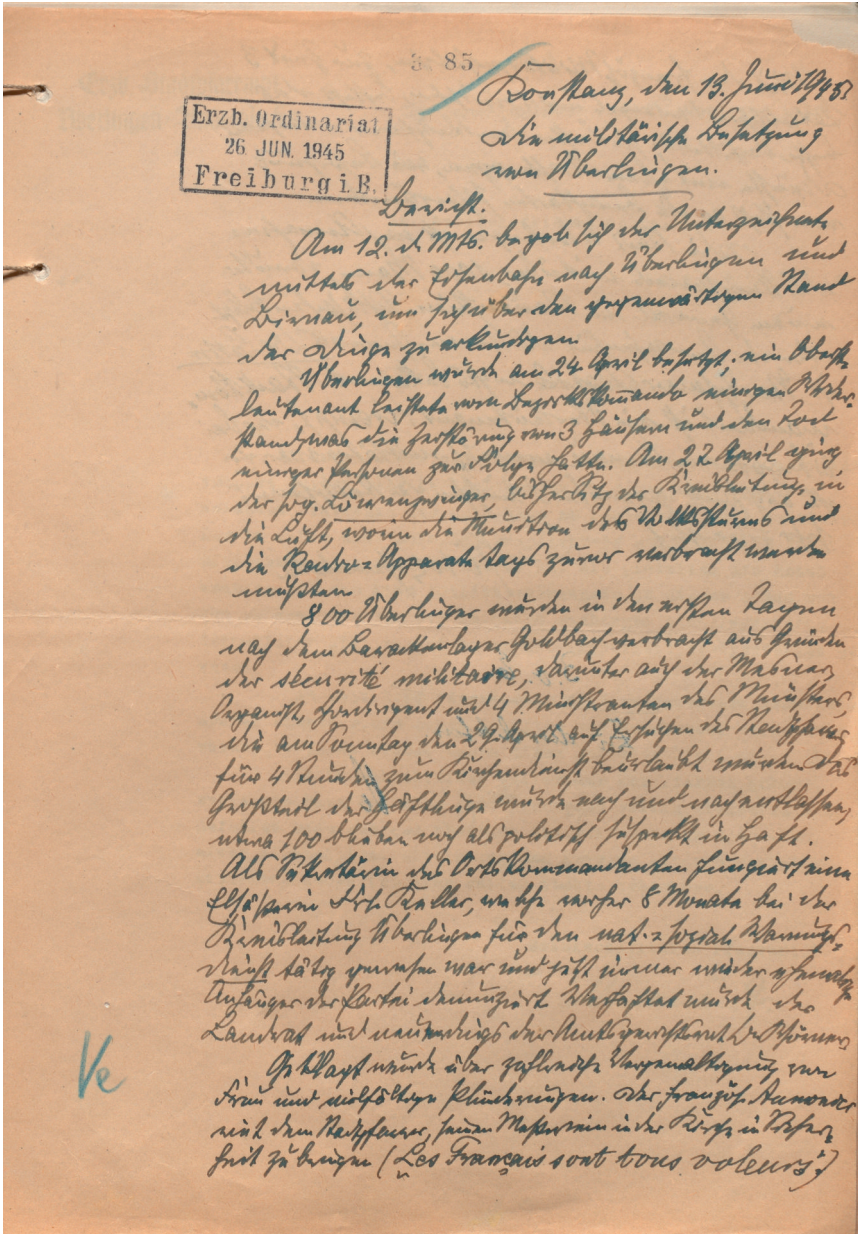 3 85
Konstanz, den 13. Juni 1945
Erzb. Ordinariat
26 JUN. 1945
Freiburg i. B.
Die militärische Besetzung
von Überlingen.
Bericht.
Am 12. d. Mts. begab sich der Unterzeichnete
mittels der Eisenbahn nach Überlingen und
Birnau, um sich über den gegenwärtigen Stand
der Dinge zu erkundigen.
Überlingen wurde am 24. April besetzt; ein Oberst-
leutnant leistete vom Bezirkskommando einigen Wider-
stand, was die Zerstörung von 3 Häusern und den Tod
einiger Personen zur Folge hatte. Am 27. April ging
der sog. Löwenzwinger, bisher Sitz der Kreisleitung, in
die Luft, worin die Munition des Volkssturms und
die Radio-Apparate tags zuvor verbracht werden
mußten.
800 Überlinger wurden in den ersten Tagen
nach dem Barackenlager Goldbach verbracht aus Gründen
der sécurité militaire, darunter auch der Mesner,
Organist, Chordirigent und 4 Ministranten des Münsters,
die am Sonntag den 29. April auf Ersuchen des Stadtpfarrers
für 4 Stunden zum Kirchendienst beurlaubt wurden. Das
Großteil der Häftlinge wurde nach und nach entlassen,
etwa 100 blieben noch als politisch suspekt in Haft.
Als Sekretärin des Ortskommandanten fungiert eine
Elsässerin Frl. Keller, welche vorher 8 Monate bei der
Kreisleitung Überlingen für den nat.-sozial. Warnungs-
dienst tätig gewesen war und jetzt immer wieder ehemalige
Anhänger der Partei denunziert. Verhaftet wurde der
Landrat und neuerdings der Amtsgerichtsrat Dr.
Geklagt wurde über zahlreiche Vergewaltigung von
Frauen und vielfältige Plünderungen. Der französ.
riet dem Stadtpfarrer, seinen Meßwein in der Kirche in Sicher-
heit zu bringen (Les Français sont tous voleurs!)
Ve